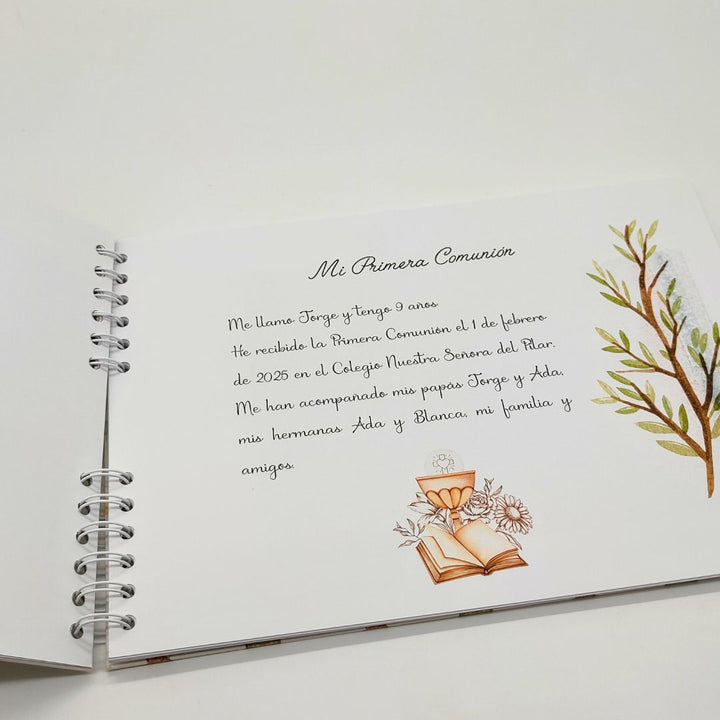 Mi Primera Comunión
Me llamo Jorge y tengo 9 años
He recibido la Primera Comunión el 1 de febrero
de 2025 en el Colegio Nuestra Señora del Pilar.
Me han acompañado mis papás Jorge y Ada,
mis hermanas Ada y Blanca, mi familia y
amigos.